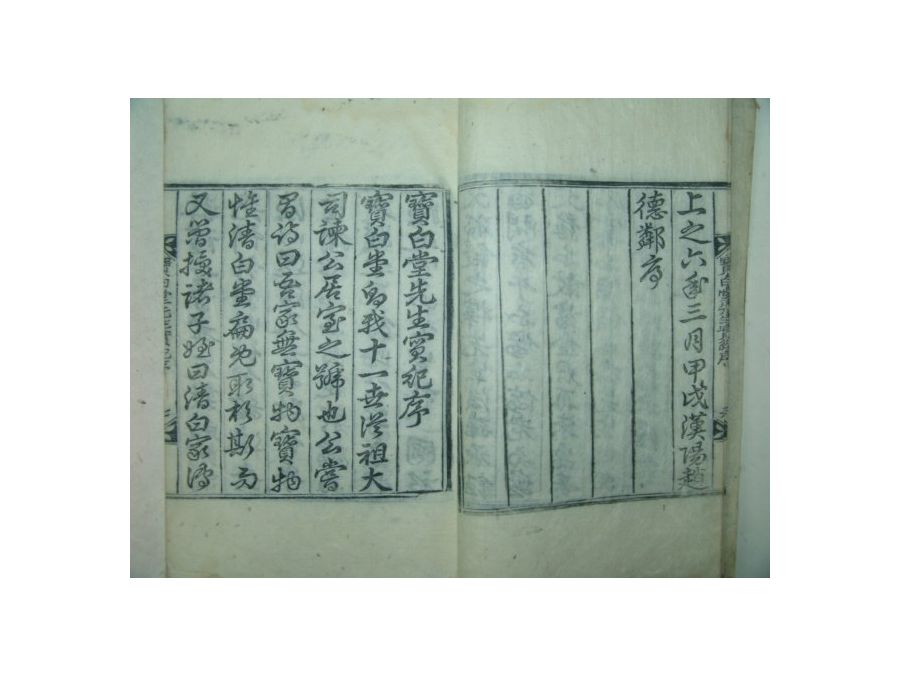 上之六年三月甲戌漢陽趙
德鄰序
寶白堂先生實紀序
寶白堂的我十一世從祖大
司諫公居室之號也公嘗
有詩曰吾家無寶物寶物
惟清白堂扁盖取於斯而
又嘗授諸子姪曰清白家傳